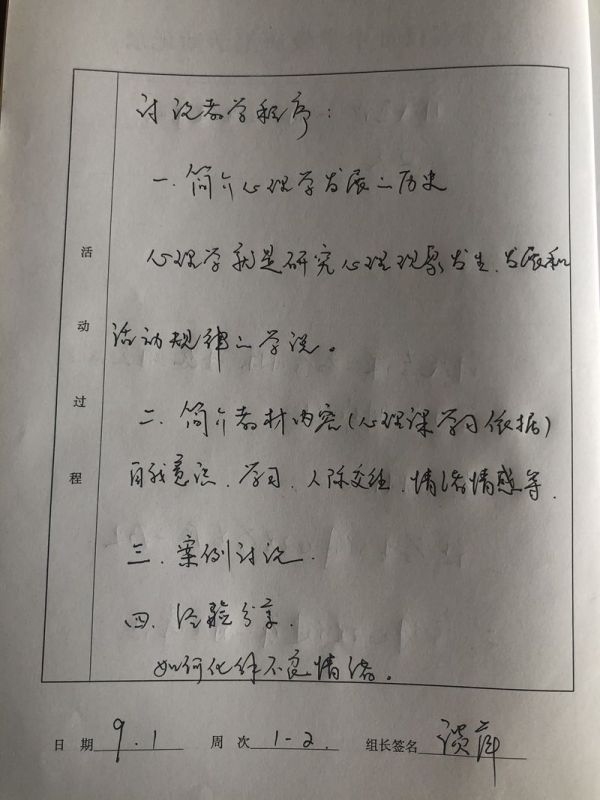 讨论教学程序:
一.简介心理学发展的历史
心理学就是研究心理现象发生、发展和
活动规律的学说。
二.简介教材内容(心理课学习依据)
自我意识、学习、人际交往、情绪情感等.
三.案例讨论.
四、经验分享.
如何化解不良情绪。
活动过程
日 期 9.1 周 次 1-2. 组长签名